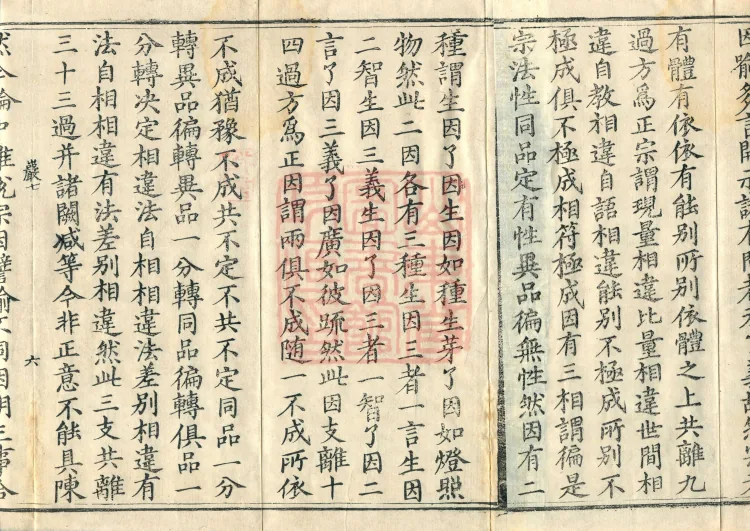 有體有依依有能別所別依體之上共離九
過方爲正宗謂現量相違比量相違世間相
違自教相違自語相違能別不極成所別不
極成俱不極成相符極成因有三相謂徧是
宗法性同品定有性異品徧無性然因有二
種謂生因了因生因如種生芽了因如燈照
物然此二因各有三種生因三者一言生因
二智生因三義生因了因三者一智了因二
言了因三義了因廣如彼疏然此因支離十
四過方爲正因謂兩俱不成隨一不成所依
不成猶豫不成共不定不共不定同品一分
轉異品徧轉異品一分轉同品徧轉俱品一
分轉决定相違法自相相違法差別相違有
法自相相違有法差別相違然此三支共離
三十三過并諸闕减等今非正意不能具陳
巖七
六